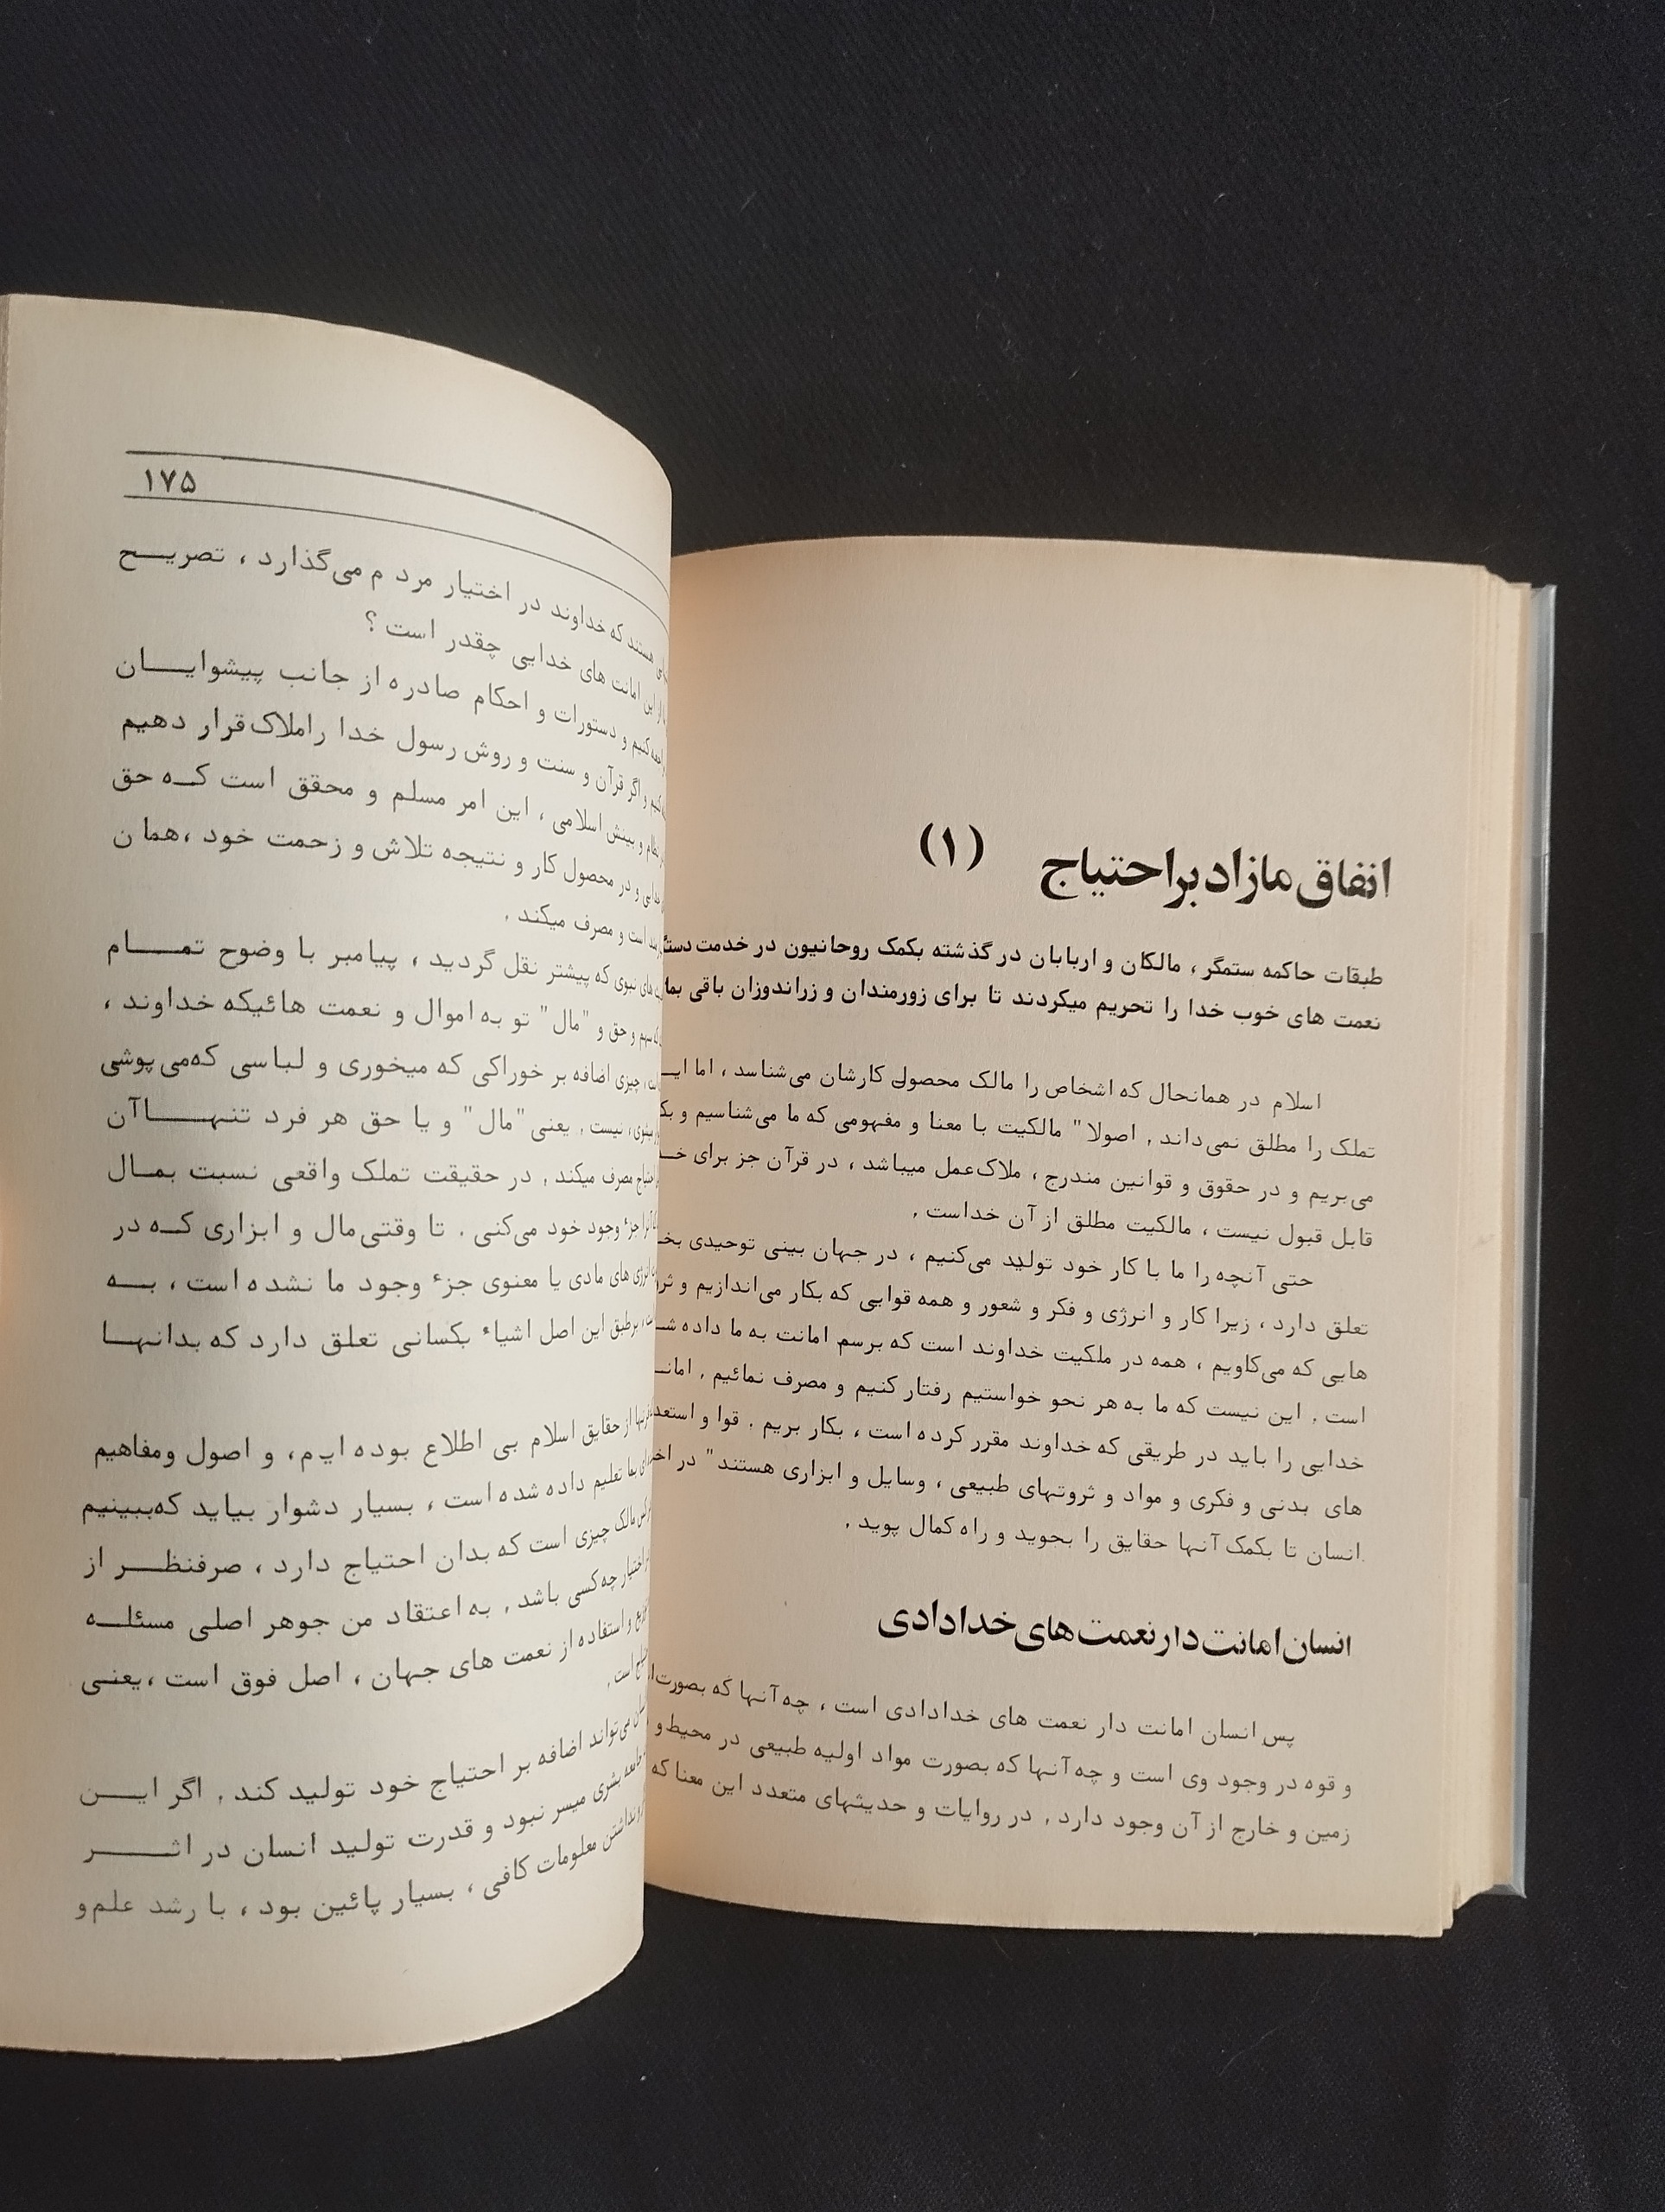 انفاق مازاد بر احتیاج (۱)
طبقات حاکمه ستمگر ، مالکان و اربابان در گذشته بکمک روحانیون در خدمت
نعمت های خوب خدا را تحریم میکردند تا برای زورمندان و زراندوزان باقی
اسلام در همانحال که اشخاص را مالک محصول کارشان می‌شناسد ، اما
تملک را مطلق نمی‌داند . اصولا" مالکیت با معنا و مفهومی که ما می‌شناسیم و
می‌بریم و در حقوق و قوانین مندرج ، ملاک‌عمل میباشد ، در قرآن جز برای
قابل قبول نیست ، مالکیت مطلق از آن خداست .
حتی آنچه را ما با کار خود تولید می‌کنیم ، در جهان بینی توحیدی
تعلق دارد ، زیرا کار و انرژی و فکر و شعور و همه قوایی که بکار می‌اندازیم و
هایی که می‌کاویم ، همه در ملکیت خداوند است که برسم امانت به ما داده
است . این نیست که ما به هر نحو خواستیم رفتار کنیم و مصرف نمائیم .
خدایی را باید در طریقی که خداوند مقرر کرده است ، بکار بریم . قوا و
های بدنی و فکری و مواد و ثروتهای طبیعی ، وسایل و ابزاری هستند" در
انسان تا بکمک آنها حقایق را بجوید و راه کمال پوید .
انسان امانت دار نعمت های خدادادی
پس انسان امانت دار نعمت های خدادادی است ، چه آنها که بصورت
و قوه در وجود وی است و چه آنها که بصورت مواد اولیه طبیعی در محیط و
زمین و خارج از آن وجود دارد . در روایات و حدیثهای متعدد این معنا که
۱۷۵
هستند که خداوند در اختیار مرد م می‌گذارد ، تصریح
از این امانت های خدایی چقدر است ؟
کنیم و دستورات و احکام صادره از جانب پیشوایان
و اگر قرآن و سنت و روش رسول خدا را ملاک قرار دهیم
و بینش اسلامی ، این امر مسلم و محقق است که حق
و در محصول کار و نتیجه تلاش و زحمت خود ، هما ن
است و مصرف میکند .
های نبوی که پیشتر نقل گردید ، پیامبر با وضوح تمام
سهم و حق و "مال" تو به اموال و نعمت هائیکه خداوند ،
چیزی اضافه بر خوراکی که میخوری و لباسی که‌می پوشی
نیست . یعنی "مال" و یا حق هر فرد تنها آن
مصرف میکند . در حقیقت تملک واقعی نسبت بمال
جزء وجود خود می‌کنی . تا وقتی‌مال و ابزاری که در
انرژی های مادی یا معنوی جزء وجود ما نشده است ، به
برطبق این اصل اشیاء بکسانی تعلق دارد که بدانها
از حقایق اسلام بی اطلاع بوده ایم ، و اصول ومفاهیم
تعلیم داده شده است ، بسیار دشوار بیاید که‌ببینیم
مالک چیزی است که بدان احتیاج دارد ، صرفنظر از
اختیار چه کسی باشد . به اعتقاد من جوهر اصلی مسئله
و استفاده از نعمت های جهان ، اصل فوق است ، یعنی
است .
می‌تواند اضافه بر احتیاج خود تولید کند . اگر این
بشری میسر نبود و قدرت تولید انسان در اثر
نداشتن معلومات کافی ، بسیار پائین بود ، با رشد علم و